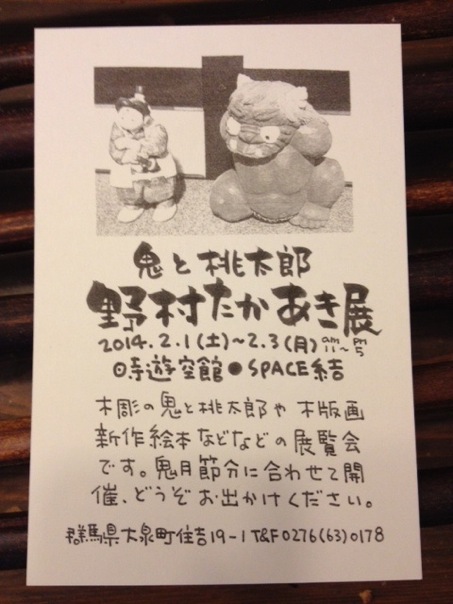 鬼と桃太郎
野村たかあき展
2014.2.1(土)~2.3(月) am11~PM5
時遊空館●SPACE結
木彫の鬼と桃太郎や 木版画
新作絵本などなどの展覧会
です。鬼月節分に合わせて開
催、どうぞお出かけください。
群馬県大泉町住吉19-1 T&F0276(63)0178